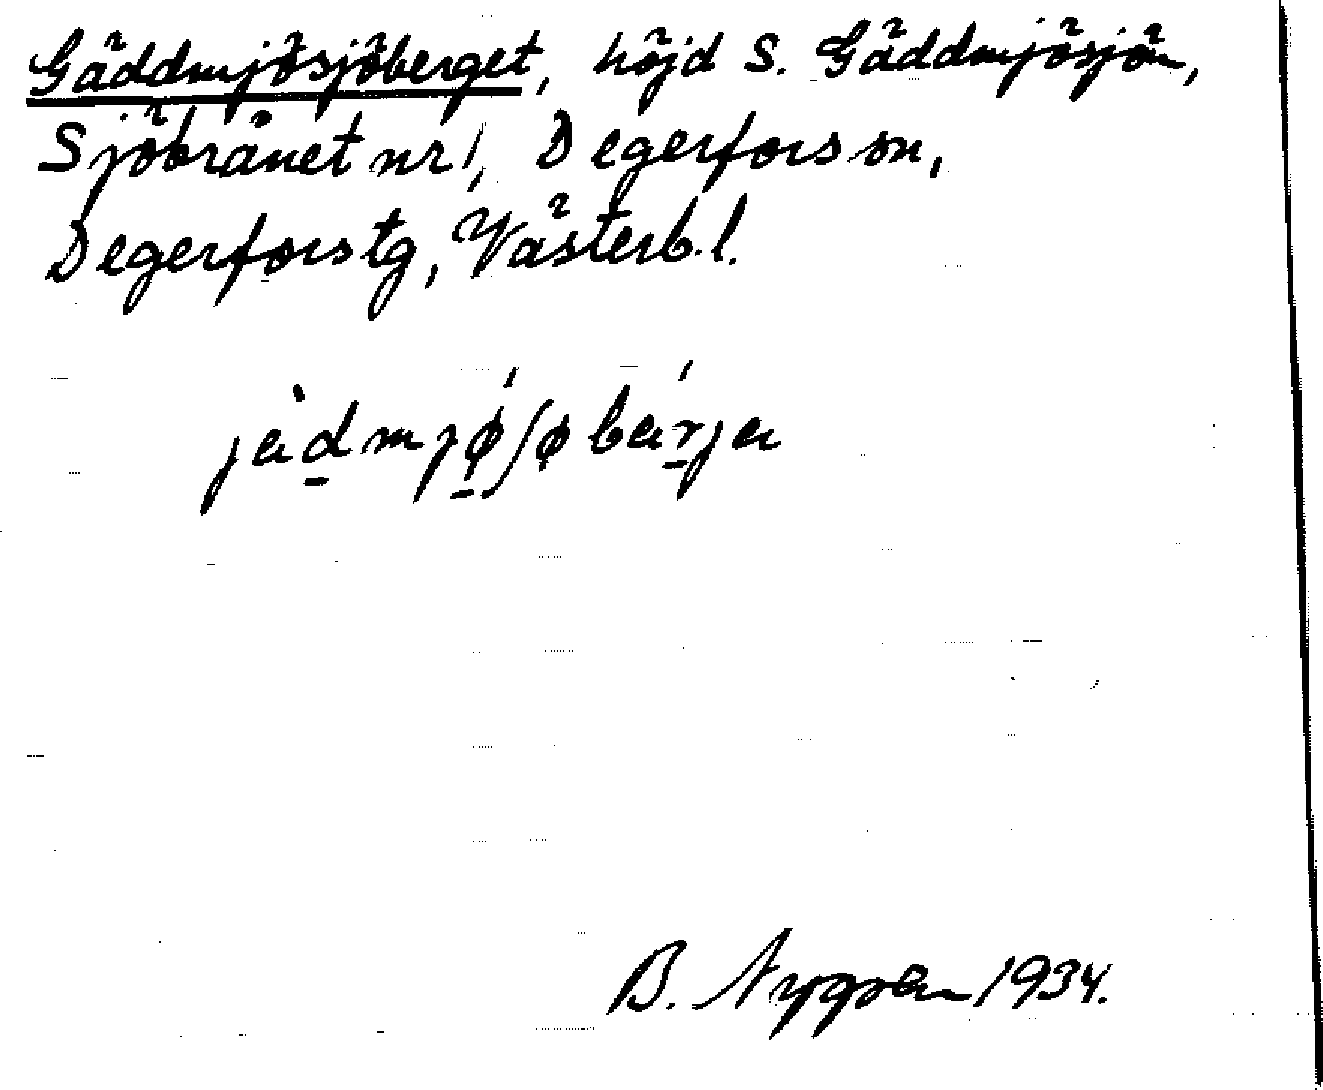 Gäddmjösjöberget, höjd S. Gäddmjösjön,
Sjöbrånet nr 1, Degerfors sn,
Degerfors tg, Västerb. l.
jàd̲mjǿ̲ʃøbäŕ̲ja
B. Nygren 1934.